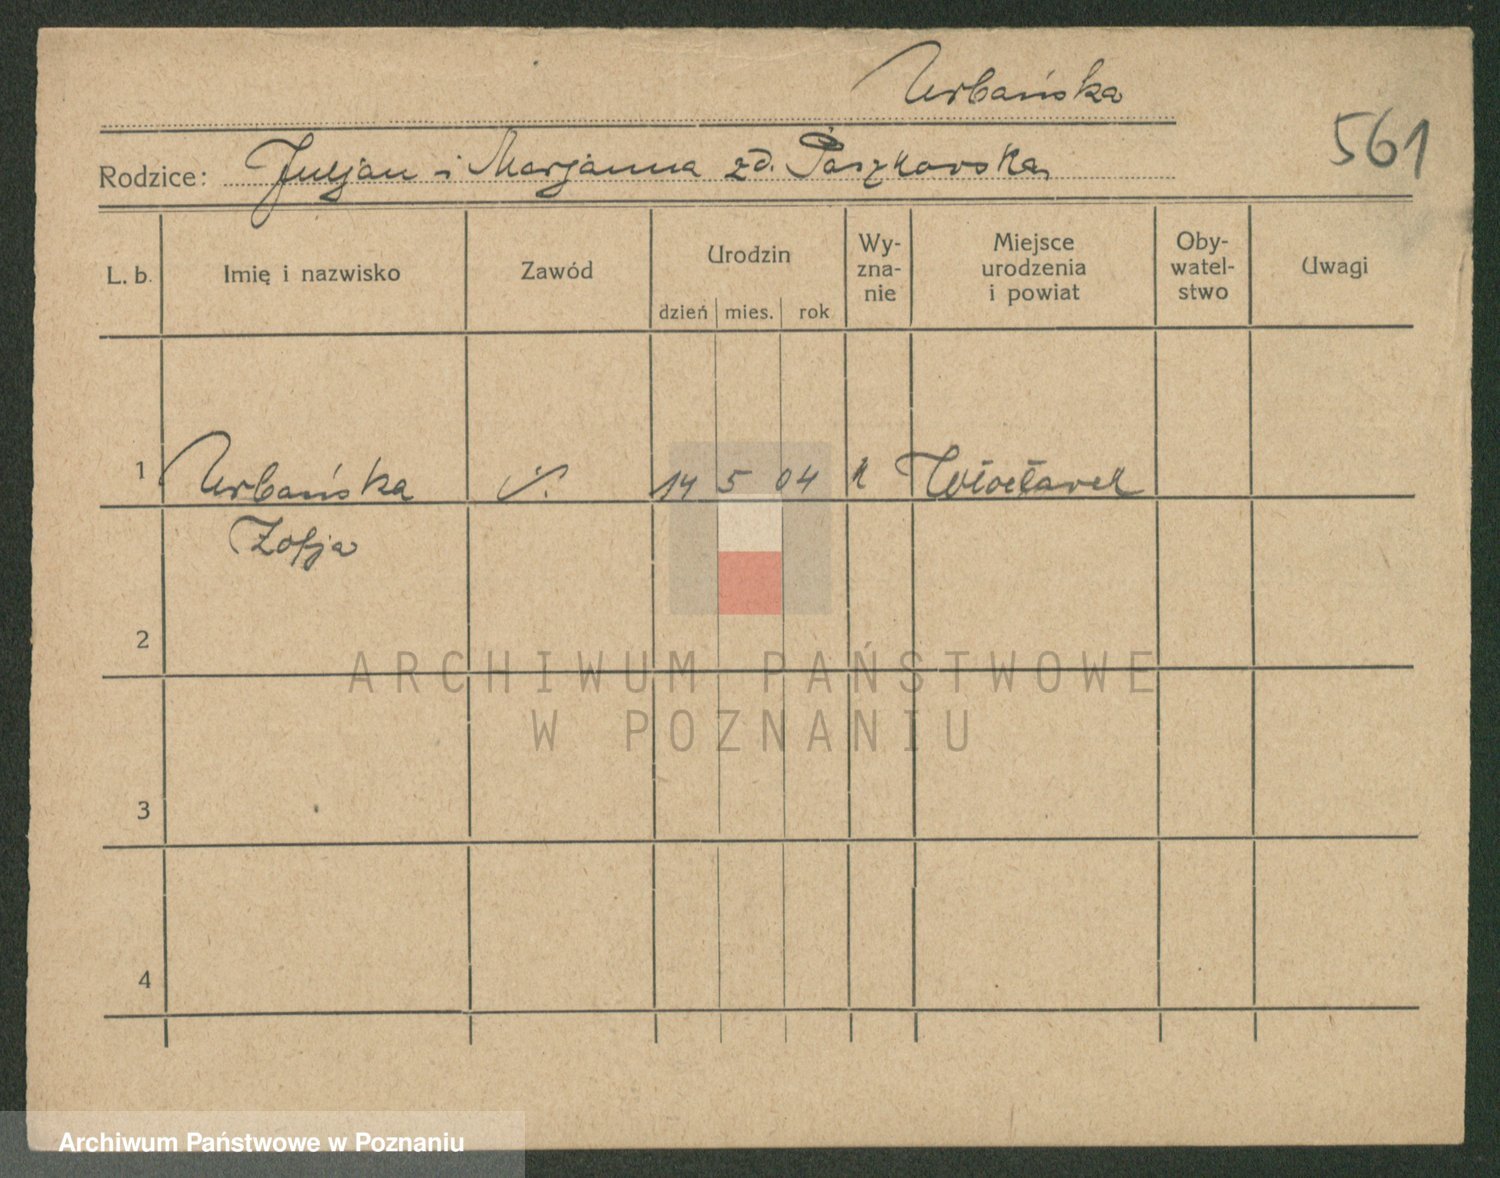 Urbańska
561
Rodzice: Juljan i Marjanna zd. Paszkowska
L. b. Imię i nazwisko Zawód Urodzin dzień mies. rok Wy-zna-nie Miejsce urodzenia i powiat Oby-watel-stwo Uwagi
1 Urbańska 14 5 04 Włocławek
Zofja
2
ARCHIWUM PAŃSTWOWE
W POZNANIU
3
4
Archiwum Państwowe w Poznaniu